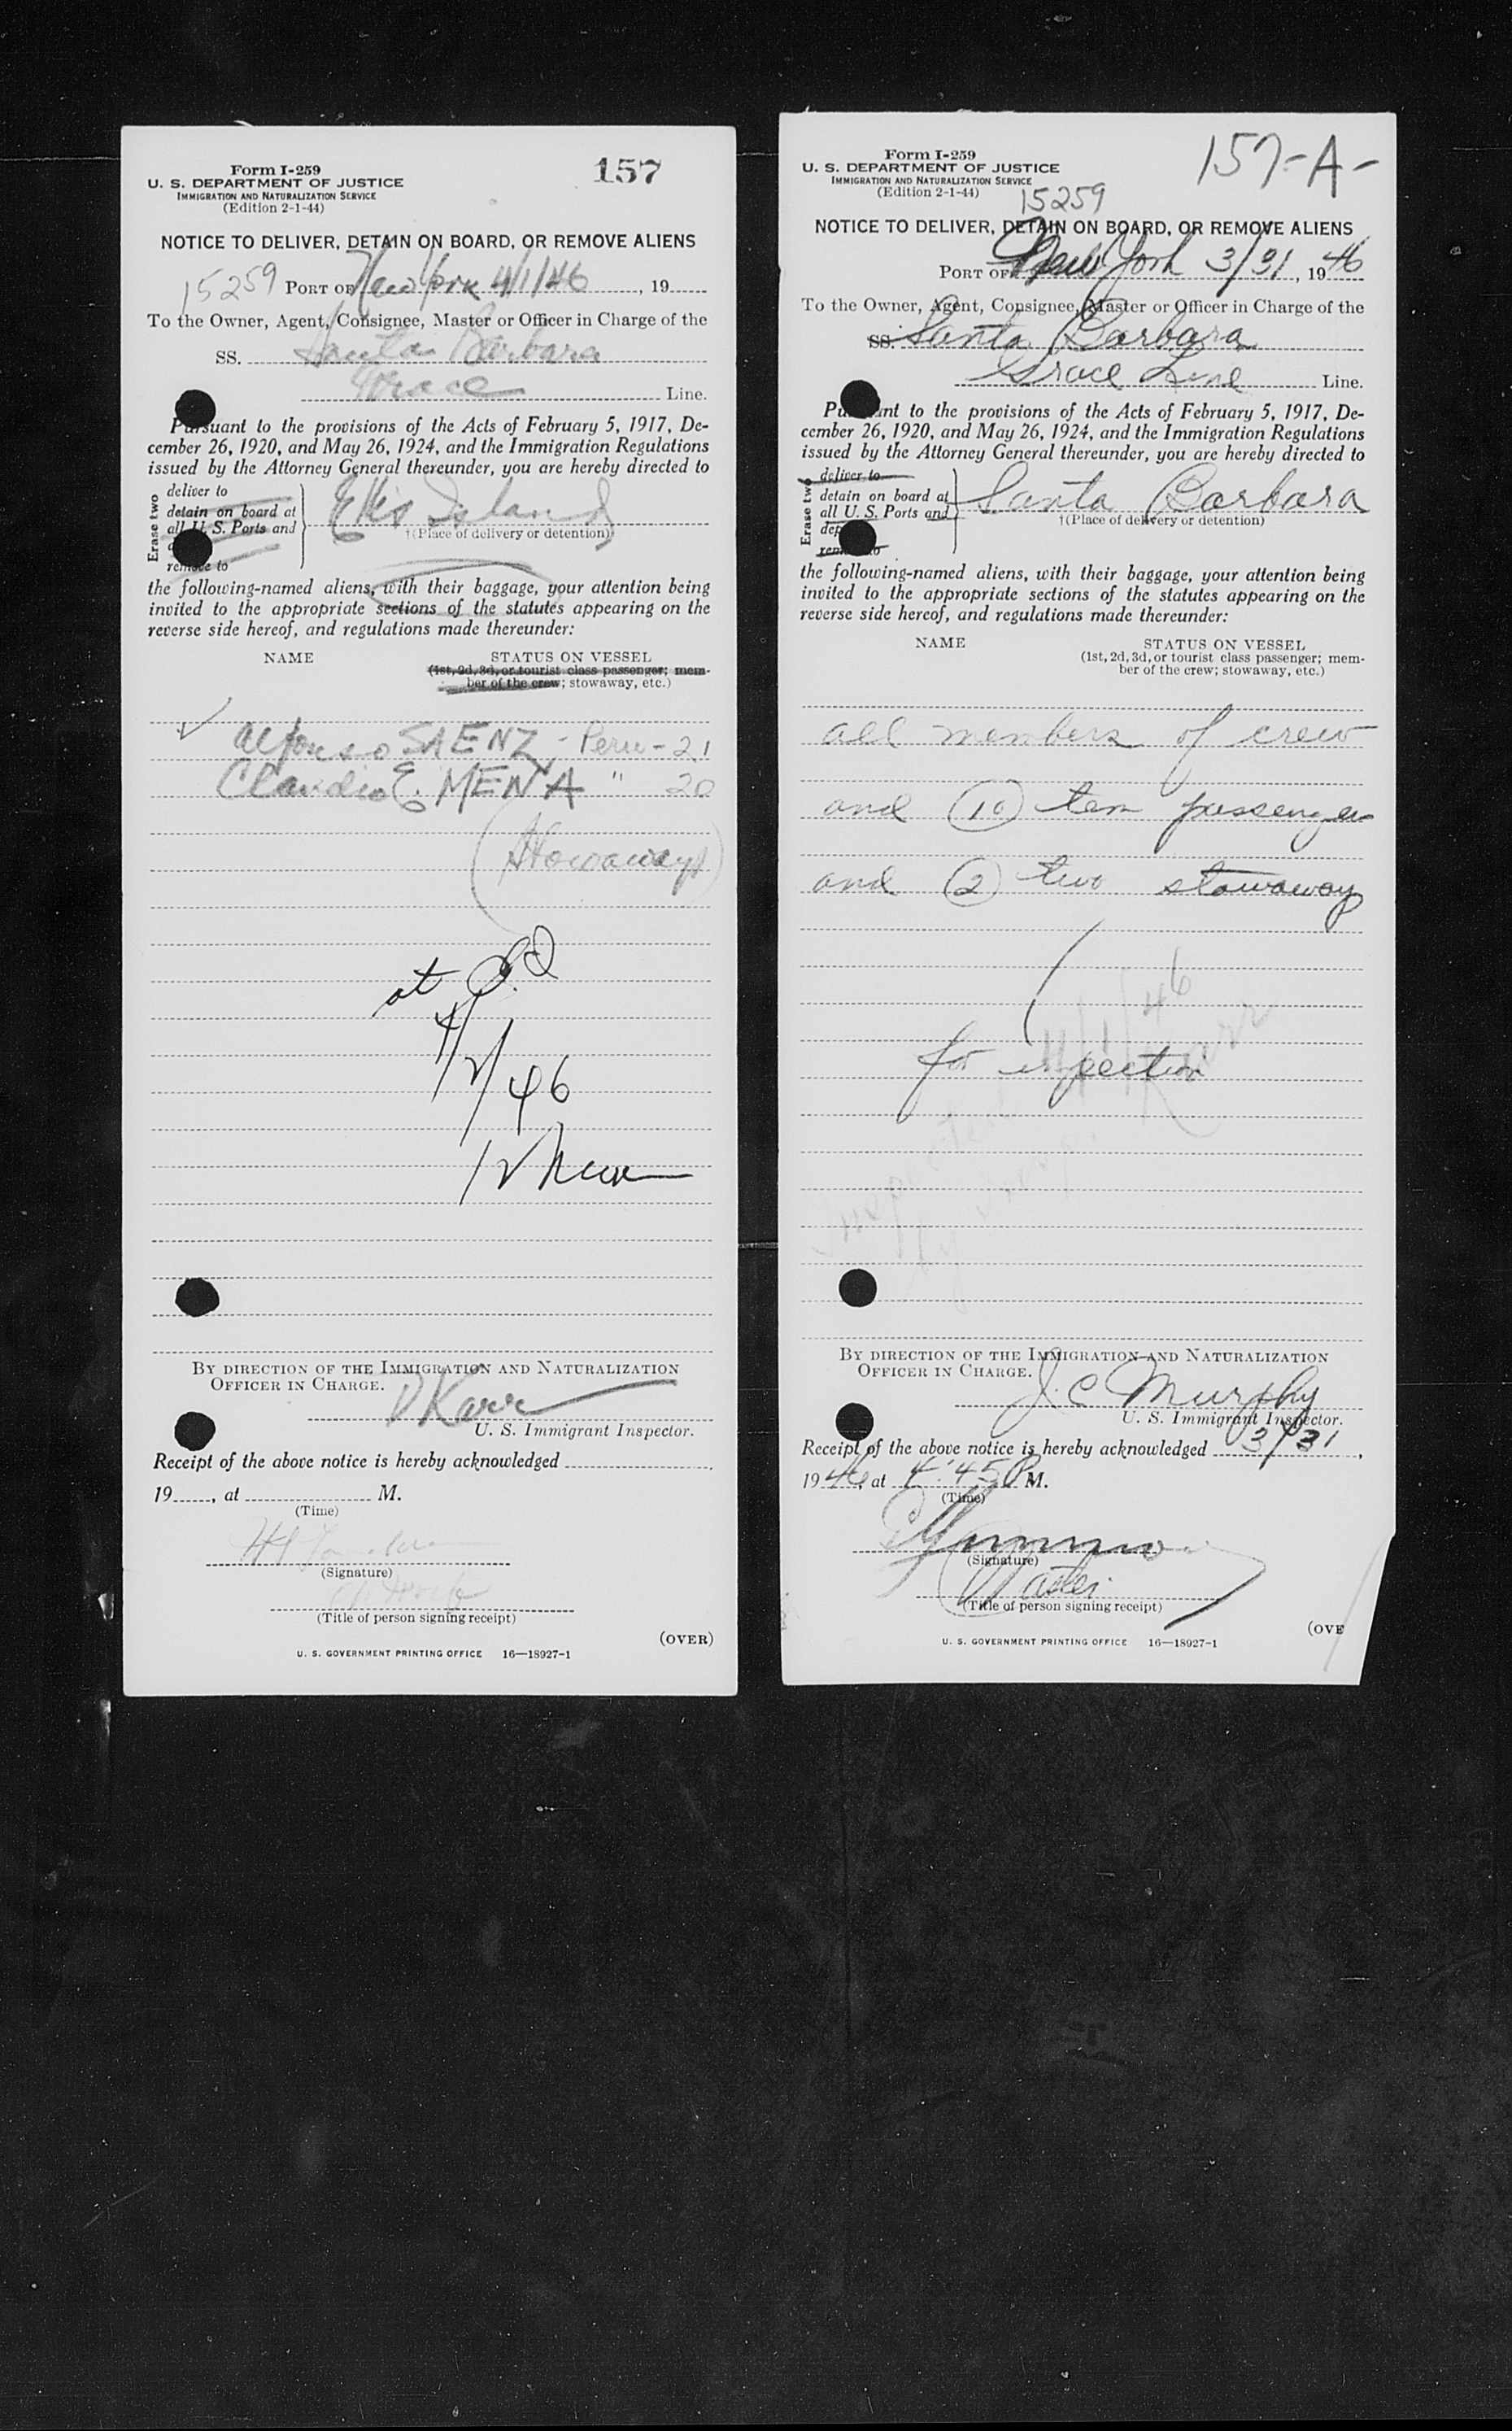 Form I-259
157
U. S. DEPARTMENT OF JUSTICE
IMMIGRATION AND NATURALIZATION SERVICE
(Edition 2-1-44)
NOTICE TO DELIVER, DETAIN ON BOARD, OR REMOVE ALIENS
15259 PORT OF New York 4/1/46, 19
To the Owner, Agent, Consignee, Master or Officer in Charge of the
SS. Santa Barbara
Grace Line.
Pursuant to the provisions of the Acts of February 5, 1917, De-
cember 26, 1920, and May 26, 1924, and the Immigration Regulations
issued by the Attorney General thereunder, you are hereby directed to
Erase two
deliver to
detain on board at
all U. S. Ports and
remove to
Ellis Island
†(Place of delivery or detention)
the following-named aliens, with their baggage, your attention being
invited to the appropriate sections of the statutes appearing on the
reverse side hereof, and regulations made thereunder:
NAME STATUS ON VESSEL
(1st, 2d, 3d, or tourist class passenger; mem-
ber of the crew; stowaway, etc.)
Alfonso SAENZ - Peru - 21
Claudio E. MENA " 20
(Stowaways)
at
4/2/46
12
BY DIRECTION OF THE IMMIGRATION AND NATURALIZATION
OFFICER IN CHARGE.
D Karr
U. S. Immigrant Inspector.
Receipt of the above notice is hereby acknowledged
19, at M.
(Time)
(Signature)
(Title of person signing receipt)
(OVER)
U. S. GOVERNMENT PRINTING OFFICE 16—18927-1
Form I-259
157-A-
U. S. DEPARTMENT OF JUSTICE
IMMIGRATION AND NATURALIZATION SERVICE
(Edition 2-1-44)
15259
NOTICE TO DELIVER, DETAIN ON BOARD, OR REMOVE ALIENS
PORT OF New York 3/31, 1946
To the Owner, Agent, Consignee, Master or Officer in Charge of the
SS. Santa Barbara
Grace Line Line.
Pursuant to the provisions of the Acts of February 5, 1917, De-
cember 26, 1920, and May 26, 1924, and the Immigration Regulations
issued by the Attorney General thereunder, you are hereby directed to
Erase two
deliver to
detain on board at
all U. S. Ports and
remove to
Santa Barbara
†(Place of delivery or detention)
the following-named aliens, with their baggage, your attention being
invited to the appropriate sections of the statutes appearing on the
reverse side hereof, and regulations made thereunder:
NAME STATUS ON VESSEL
(1st, 2d, 3d, or tourist class passenger; mem-
ber of the crew; stowaway, etc.)
all members of crew
and (10) ten passenger
and (2) two stowaway
for inspection
4/1/46
Karr
BY DIRECTION OF THE IMMIGRATION AND NATURALIZATION
OFFICER IN CHARGE.
J. C Murphy
U. S. Immigrant Inspector.
Receipt of the above notice is hereby acknowledged 3/31,
1946, at 4:45 P M.
(Time)
(Signature)
Master
(Title of person signing receipt)
(OVE
U. S. GOVERNMENT PRINTING OFFICE 16—18927-1